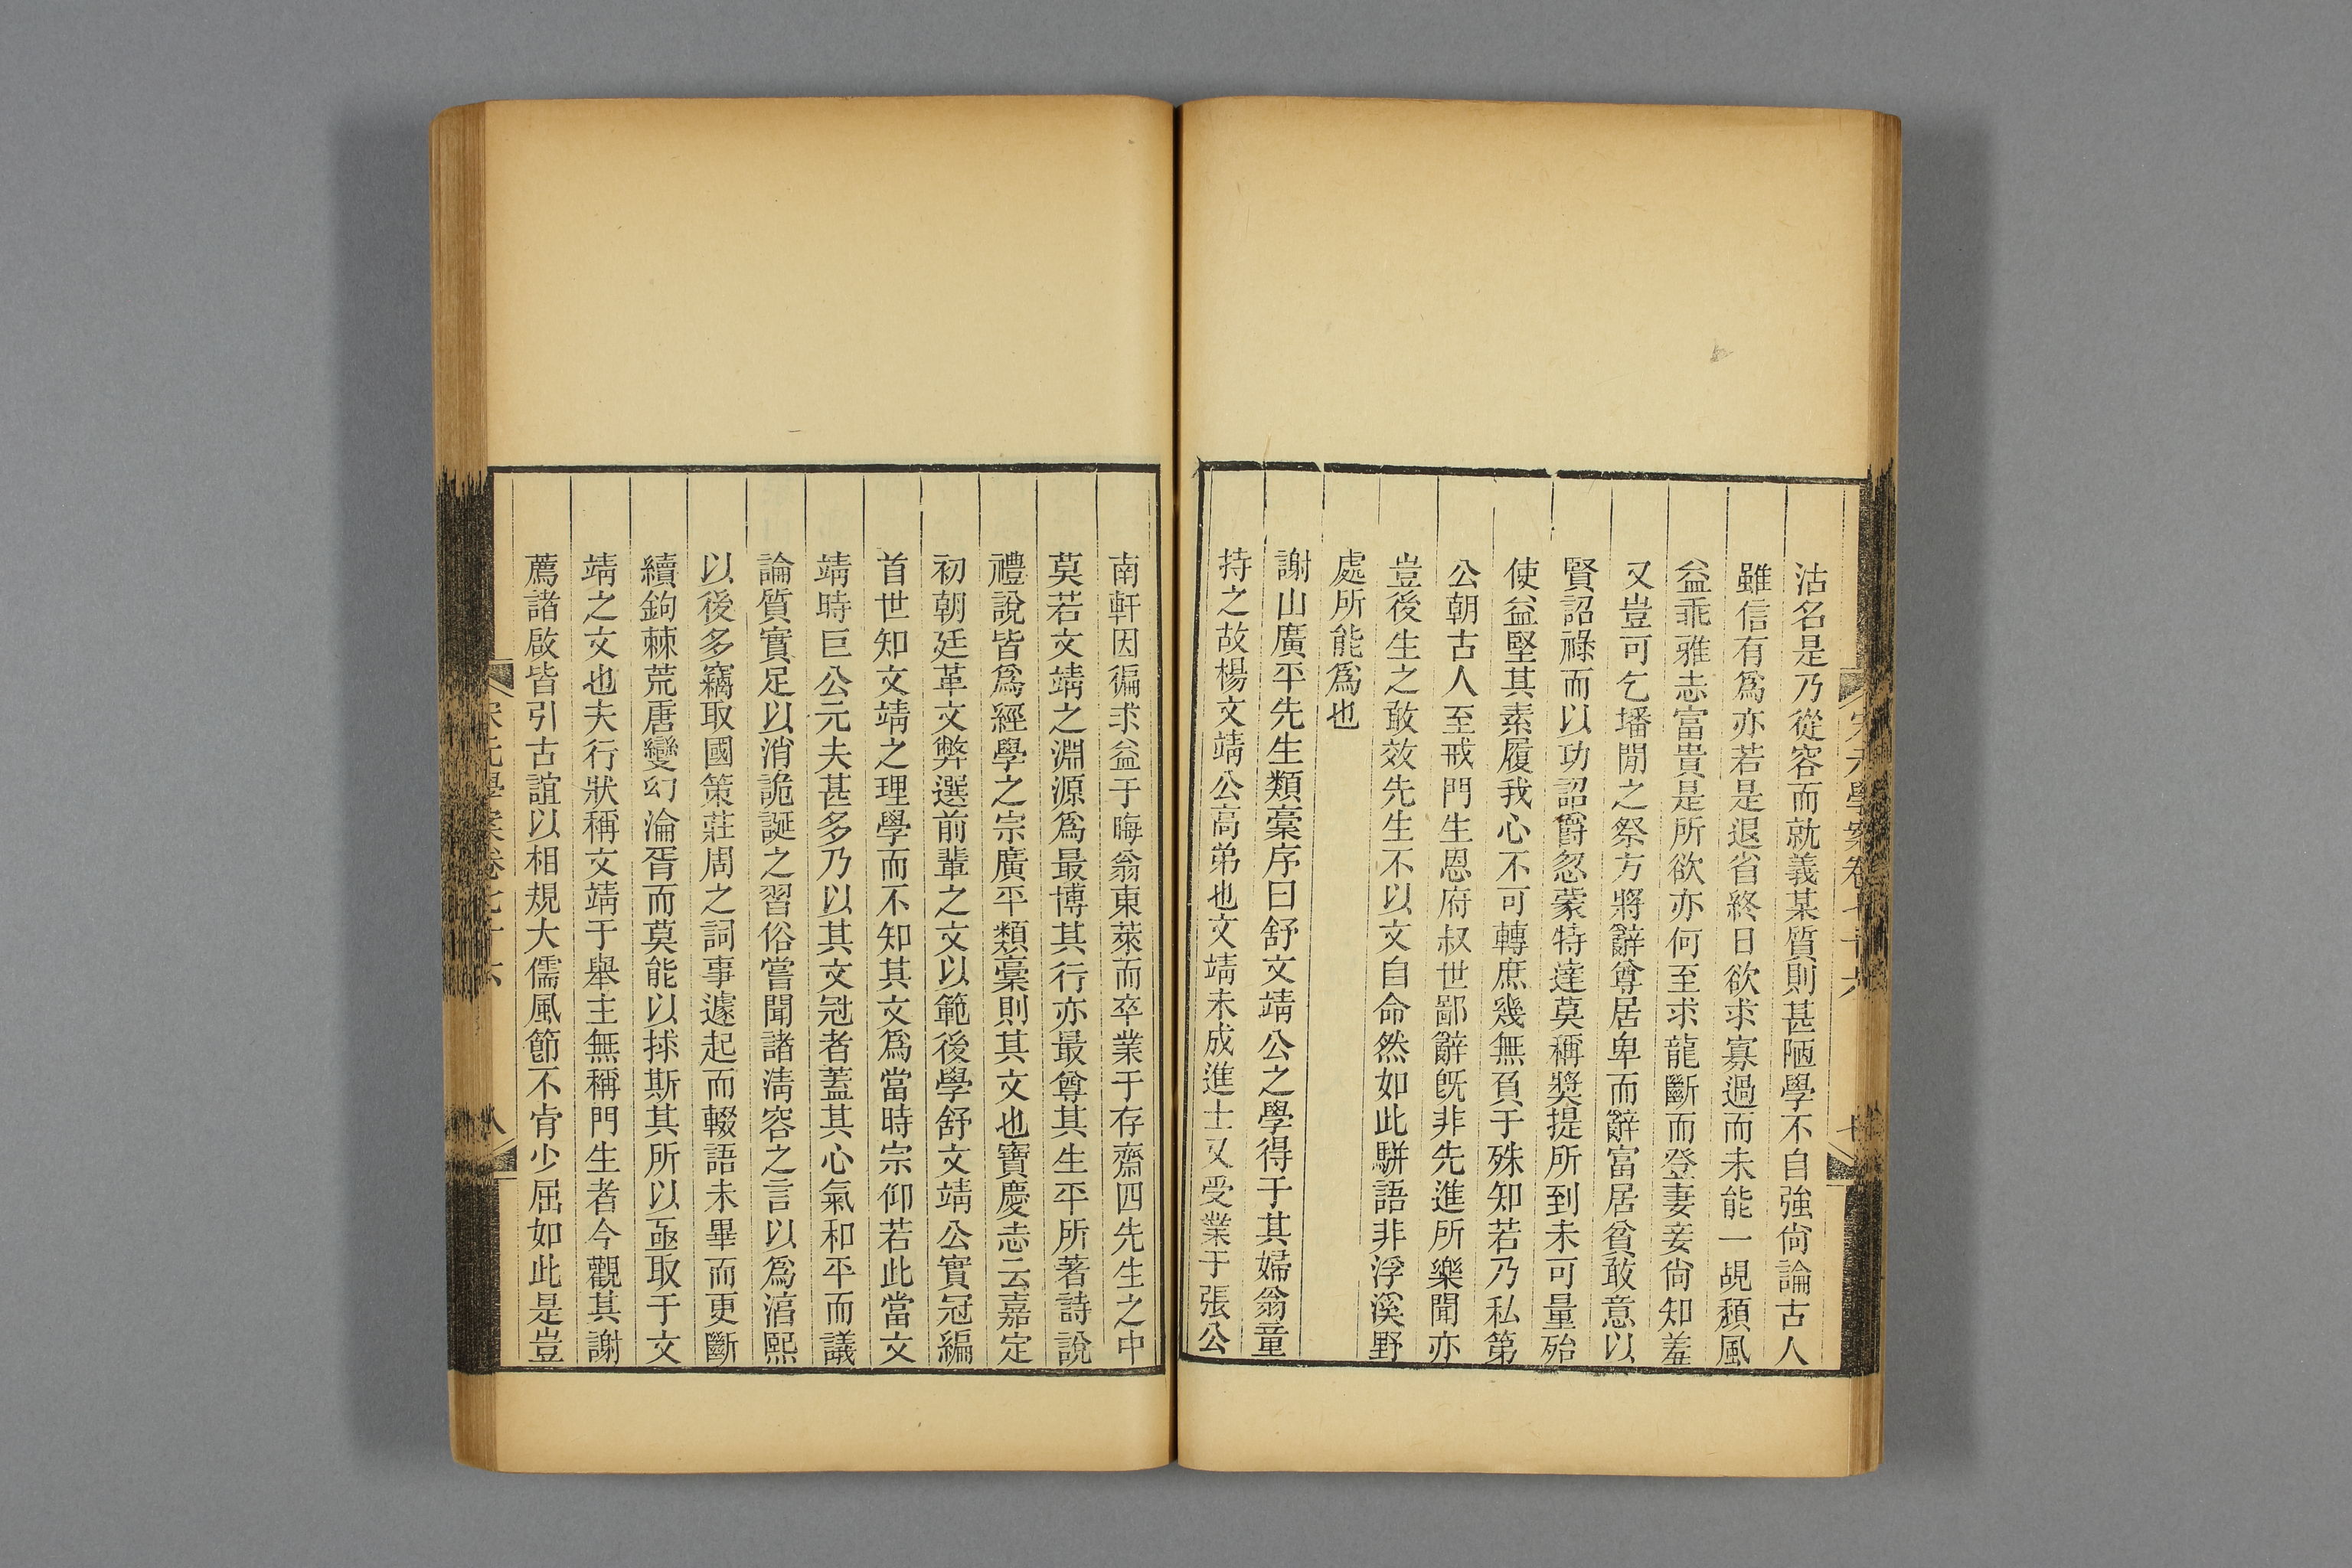 沽名是乃從容而就義某質則甚陋學不自強尙論古人
雖信有爲亦若是退省終日欲求寡過而未能一覘頽風
益乖雅志富貴是所欲亦何至求龍斷而登妻妾尙知羞
又豈可乞墦閒之祭方將辭尊居卑而辭富居貧敢意以
賢詔祿而以功詔爵忽蒙特達莫稱獎提所到未可量殆
使益堅其素履我心不可轉庶幾無負于殊知若乃私第
公朝古人至戒門生恩府叔世鄙辭旣非先進所樂聞亦
豈後生之敢效先生不以文自命然如此騈語非浮溪野
處所能爲也
謝山廣平先生類稾序曰舒文靖公之學得于其婦翁童
持之故楊文靖公高弟也文靖未成進士又受業于張公
宋元學案卷七十六
南軒因徧求益于晦翁東萊而卒業于存齋四先生之中
莫若文靖之淵源爲最博其行亦最尊其生平所著詩說
禮說皆爲經學之宗廣平類稾則其文也寶慶志云嘉定
初朝廷革文弊選前輩之文以範後學舒文靖公實冠編
首世知文靖之理學而不知其文爲當時宗仰若此當文
靖時巨公元夫甚多乃以其文冠者蓋其心氣和平而議
論質實足以消詭誕之習俗嘗聞諸淸容之言以爲湻熙
以後多竊取國策莊周之詞事遽起而輟語未畢而更斷
續鉤棘荒唐變幻淪胥而莫能以捄斯其所以亟取于文
靖之文也夫行狀稱文靖于舉主無稱門生者今觀其謝
薦諸啟皆引古誼以相規大儒風節不肯少屈如此是豈
宋元學案卷七十六
八